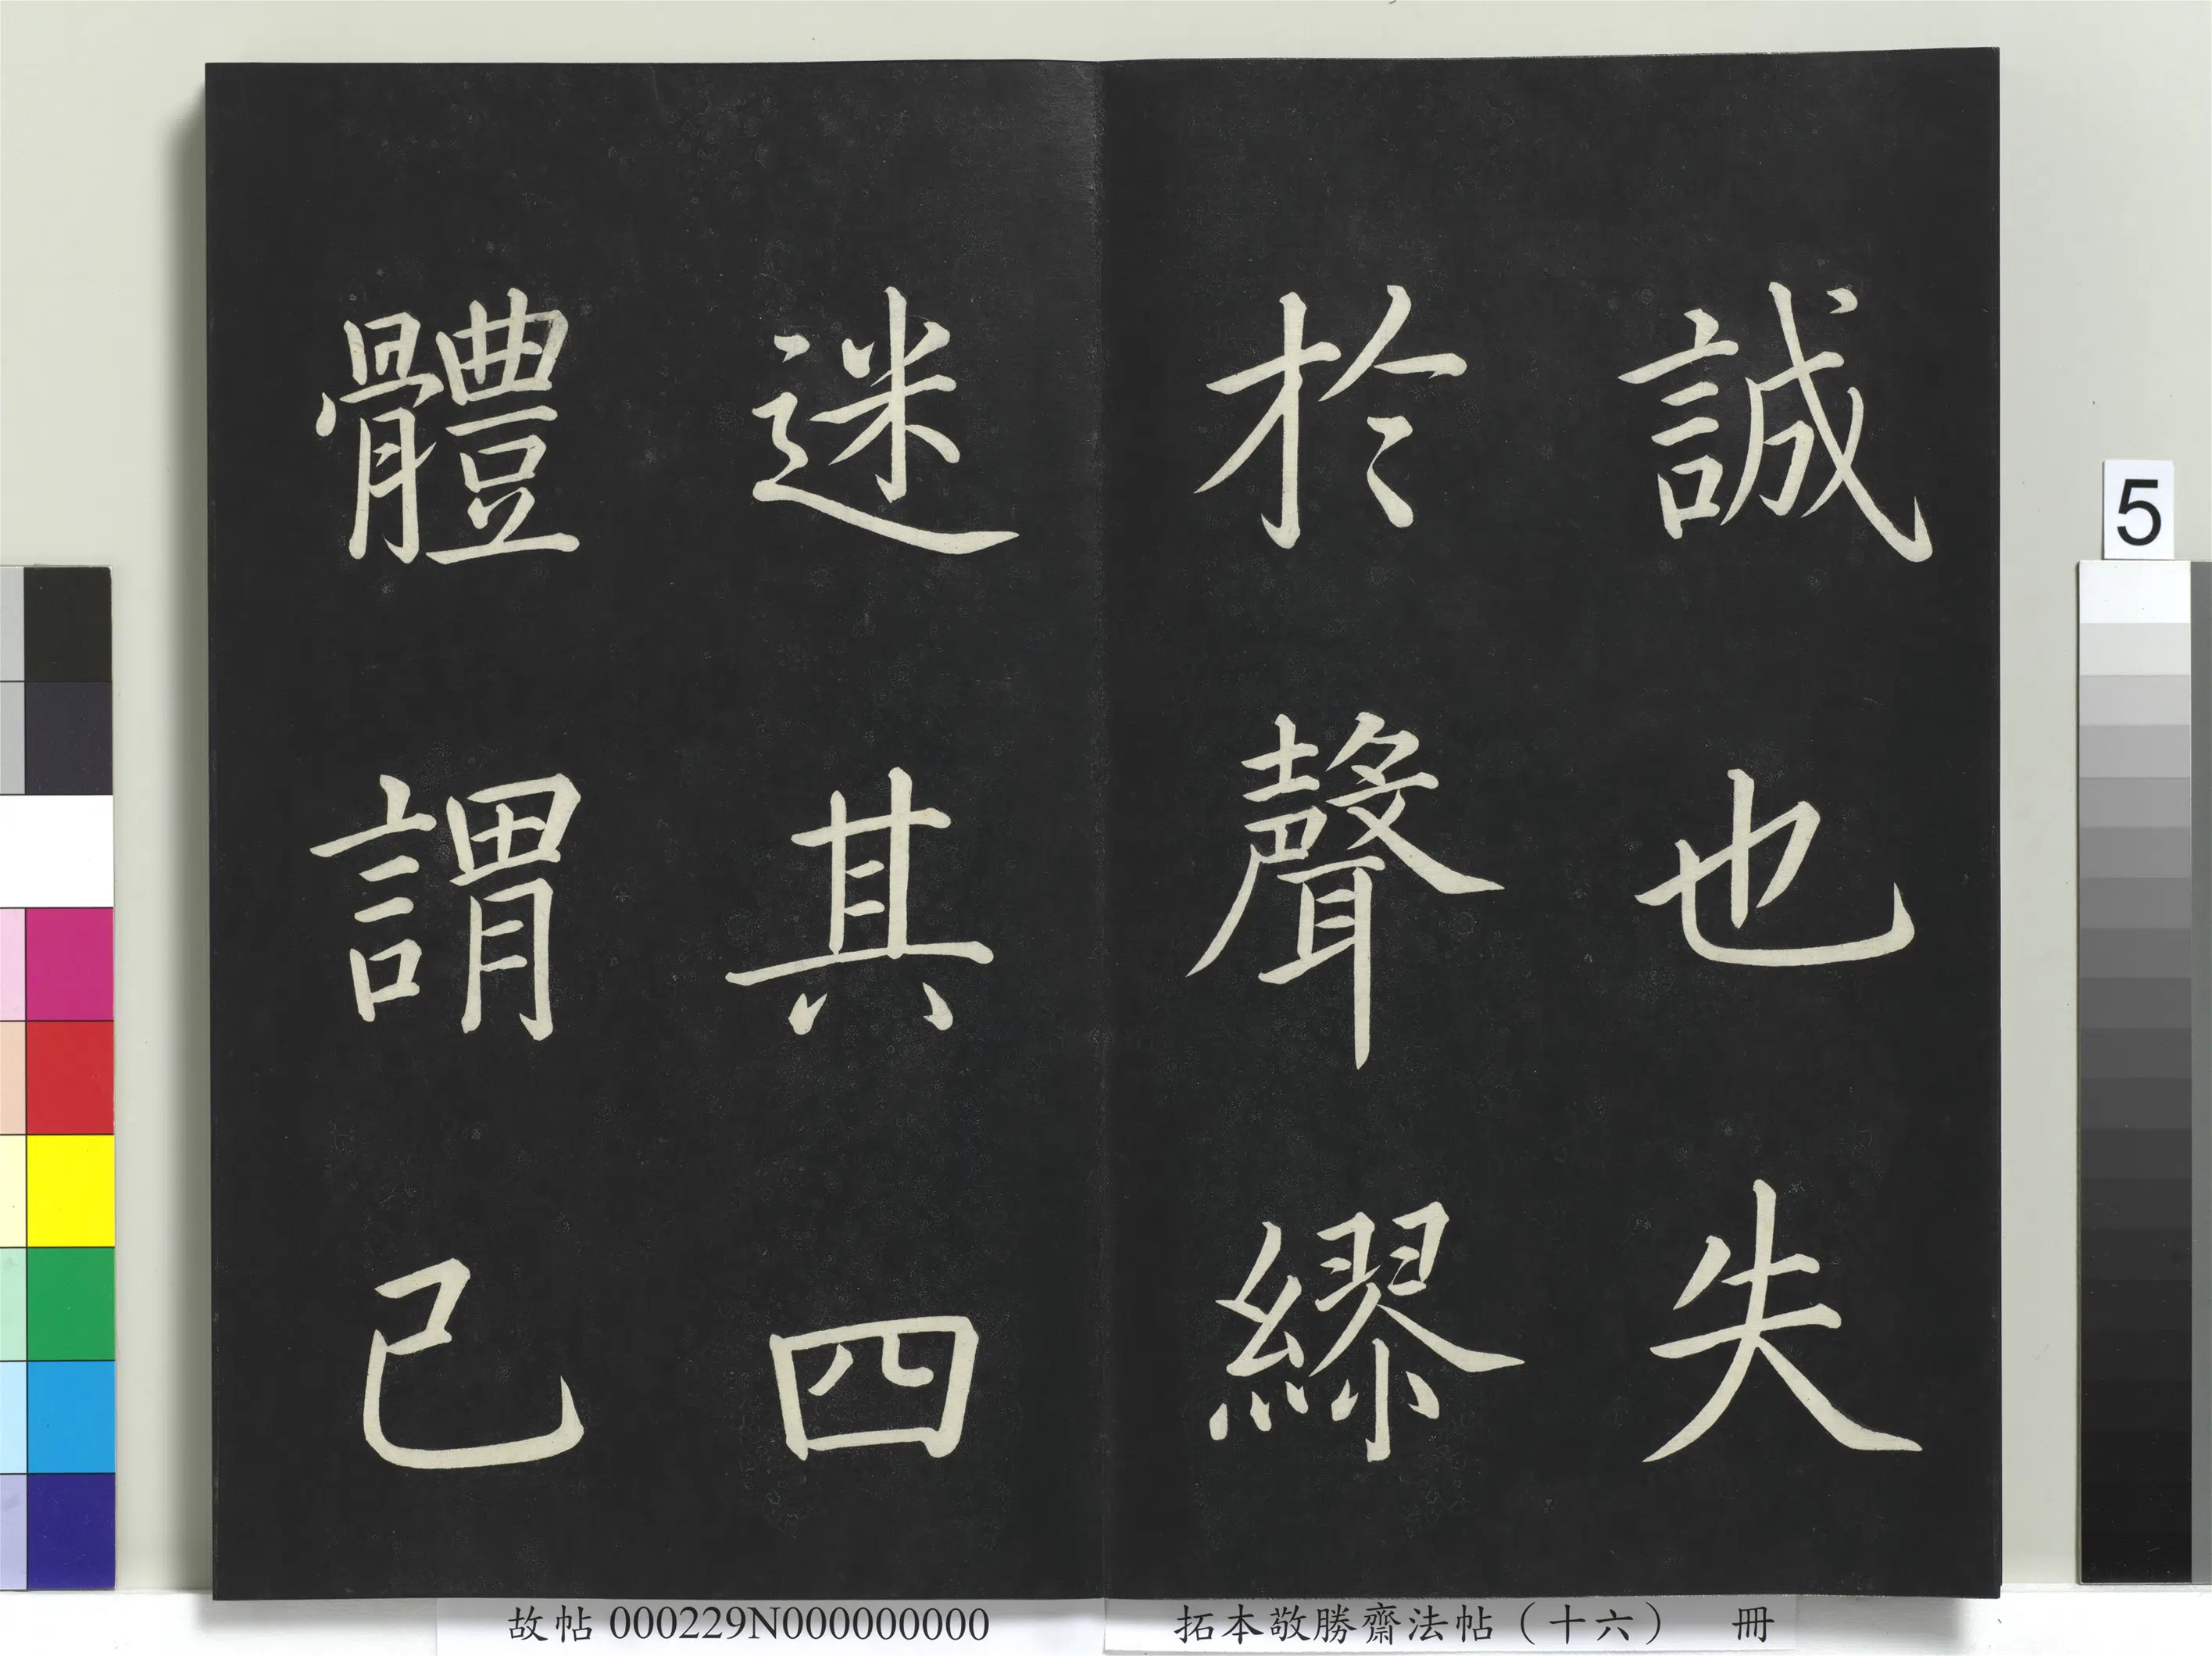 誠也失
於聲繆
迷其四
體謂己
5
故帖 000229N000000000
拓本敬勝齋法帖（十六） 冊